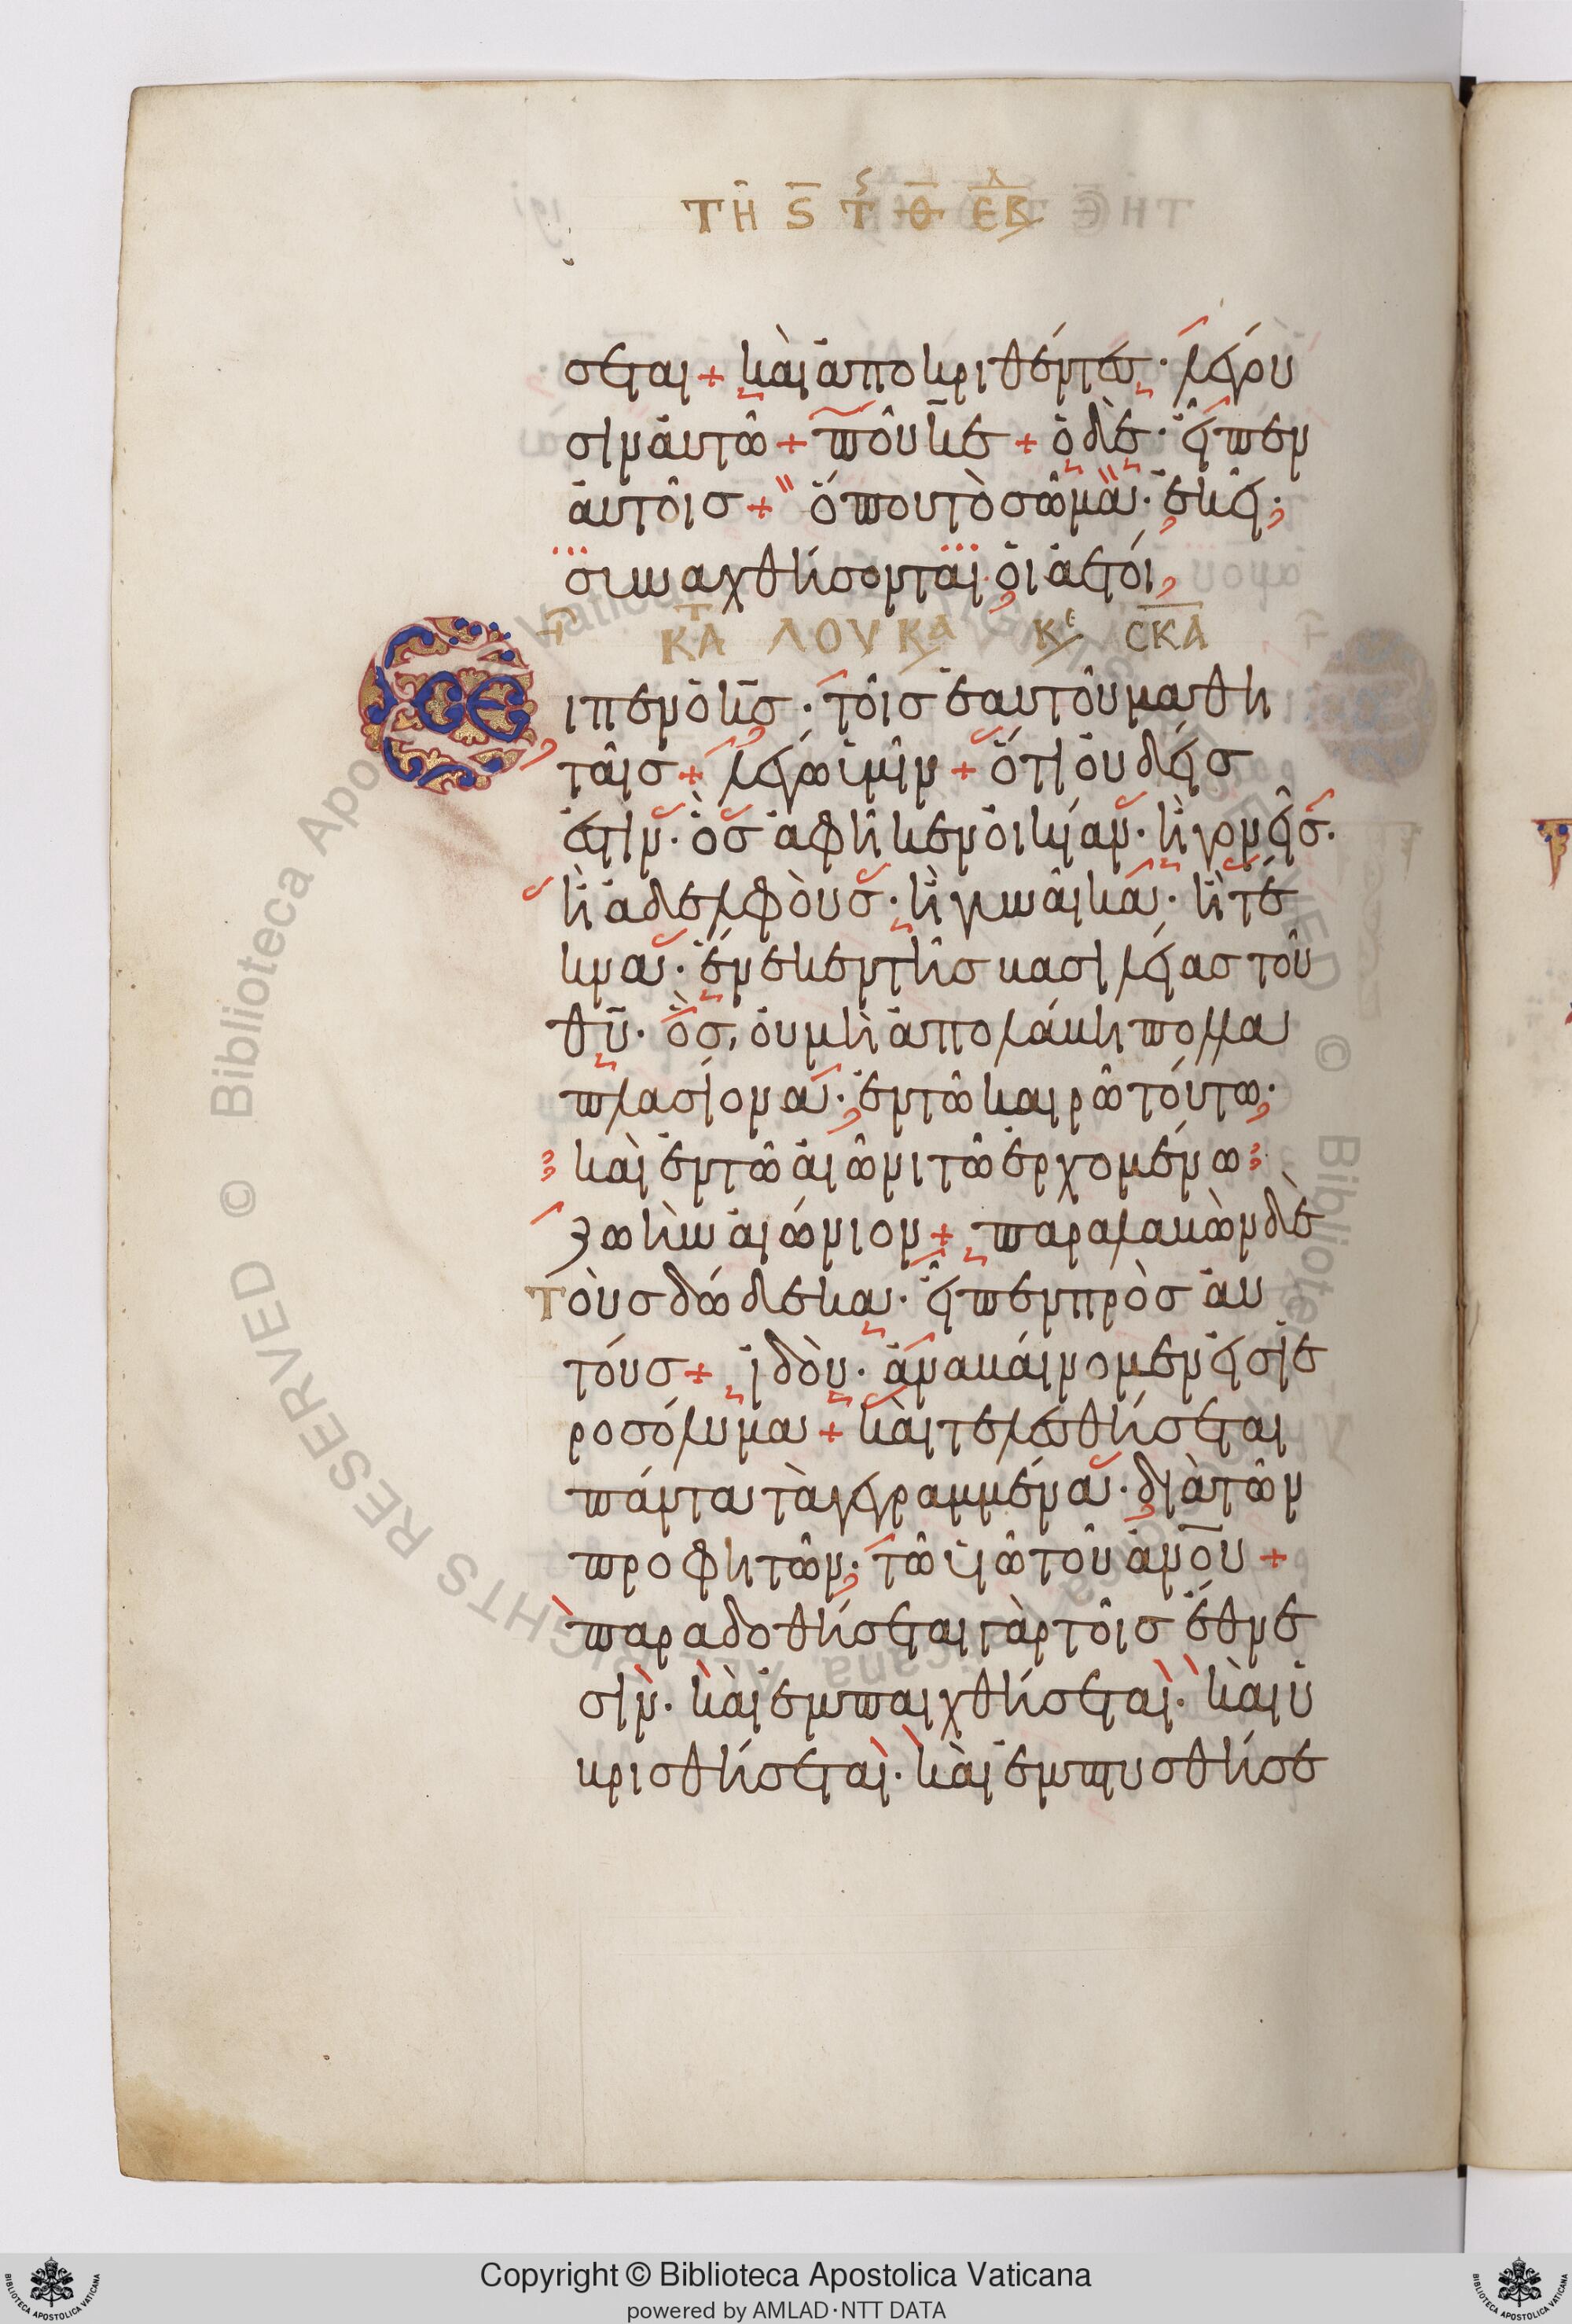 ΤΗ S Τ Θ ΕΒ
σεται + καὶ ἀποκριθέντες · λέγου
σιν αὐτῶ + ποῦ κε + ὁ δὲ · εἶπεν
αὐτοῖσ + ὅπου τὸ σῶμα · ἐκεῖ ·
συναχθήσονται · οἱ ἀετοί
ΚΑΤ ΛΟΥΚΑ ΚΕ CΚΑ
ιπεν ὁ κσ · τοῖσ ἑαυτοῦ μαθη
ταῖσ + λέγω ὑμῖν + ὅτι οὐδείσ
ἐστιν · ὃσ ἀφῆκεν οἰκίαν · ἢ γονεῖσ ·
ἢ ἀδελφοὺσ · ἢ γυναῖκα · ἢ τέ
κνα · ἕνεκεν τῆσ βασιλείασ τοῦ
θυ · ὃσ, οὐ μὴ ἀπολάβη πολλα
πλασίονα · ἐν τῶ καιρῶ τούτω ·
καὶ ἐν τῶ αἰῶνι τῶ ἐρχομένω
ζωὴν αἰώνιον + παραλαβὼν δὲ
τοὺσ δώδεκα · εἶπεν πρὸσ αὐ
τούσ + ἰδοὺ · ἀναβαίνομεν εἰσ ἱε
ροσόλυμα + καὶ τελεσθήσεται
πάντα τὰ γεγραμμένα · διὰ τῶν
προφητῶν · τῶ υἱῶ τοῦ ἀνου +
παραδοθήσεται γὰρ τοῖσ ἔθνε
σιν · καὶ ἐμπαιχθήσεται · καὶ ὑ
βρισθήσεται · καὶ ἐμπτυσθήσε
Copyright © Biblioteca Apostolica Vaticana
powered by AMLAD·NTT DATA